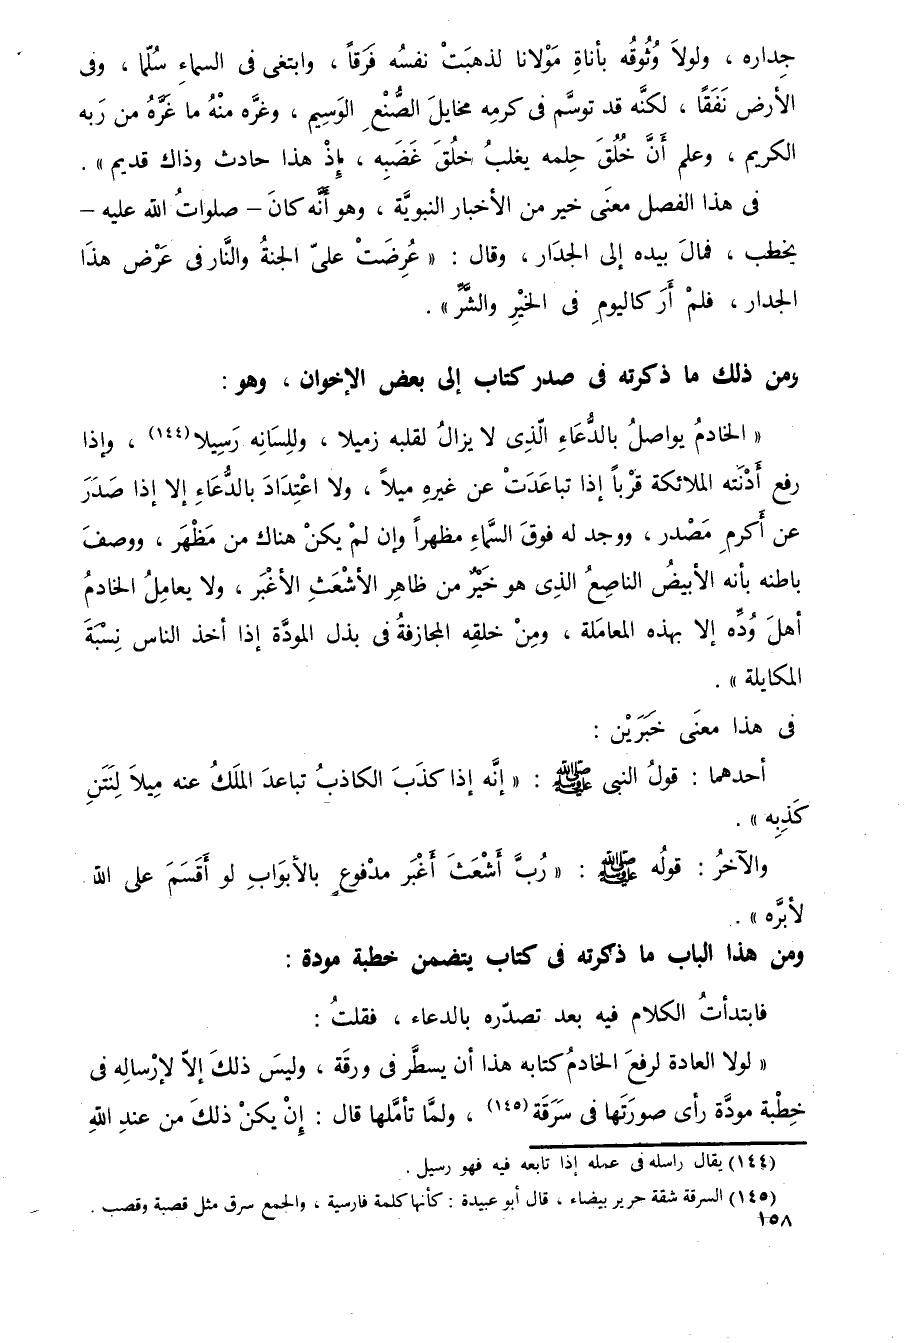 جِداره ، ولولاَ وُثُوقُه بأناةِ مَوْلانا لذهبَتْ نفسُه فَرَقاً ، وابتغى فى السماءِ سُلّما ، وفى
الأرض نَفَقًا ، لكنَّه قد توسَّم فى كرمِه مخايلَ الصُّنْعِ الوَسِيم ، وغرَّه منْهُ ما غَرَّهُ من رَبه
الكريم ، وعلم أَنَّ خُلُقَ حِلمه يغلبُ خلُقَ غَضَبِه ، إِذْ هذا حادث وذاك قديم » .
فى هذا الفصل معنَى خير من الأخبار النبويَّة ، وهو أنَّه كانَ – صلواتُ الله عليه –
يخطب ، فمالَ بيده إلى الجدَار ، وقال : « عُرِضَتْ علىّ الجنةُ والنَّار فى عَرْض هذَا
الجدار ، فلمْ أَرَ كاليومِ فى الخيْرِ والشَّرِّ » .
ومن ذلك ما ذكرته فى صدر كتاب إلى بعض الإخوان ، وهو :
« الخادمُ يواصلُ بالدُّعَاءِ الّذِى لا يزالُ لقلبه زميلا ، وللِسَانِه رَسِيلا(١٤٤) ، وإذا
رفع أَدْنَته الملائكة قرْباً إذا تباعَدَتْ عن غيرهِ ميلاً ، ولا اعْتِدَادَ بالدُّعَاءِ إلا إذا صَدَرَ
عن أَكرمِ مَصْدر ، ووجد له فوقَ السَّماءِ مظهراً وإن لمْ يكنْ هناك من مَظْهَر ، ووصفَ
باطنه بأنه الأبيضُ الناصِعُ الذِى هو خَيْرٌ من ظاهِر الأشْعَثِ الأغْبَر ، ولا يعامِلُ الخادمُ
أهلَ وُدِّه إلا بهذه المعامَلة ، ومِنْ خلقِه المجازفةُ فى بذل المودَّة إذا أخذ الناس نِسْبَةَ
المكايلة » .
فى هذا معنَى خَبَرَيْن :
أحدهما : قولُ النبى ﷺ : « إنَّه إذا كذَبَ الكاذبُ تباعدَ الملَكُ عنه مِيلاَ لِنَتَنِ
كَذِبِه » .
والآخرُ : قولُه ﷺ : « رُبَّ أَشْعَثَ أَغْبَر مدْفوعٍ بالأبوَابِ لو أَقَسَمَ على الله
لأبرَّه » .
ومن هذا الباب ما ذكرته فى كتاب يتضمن خطبة مودة :
فابتدأتُ الكلام فيه بعد تصدّره بالدعاء ، فقلتُ :
« لولا العادة لرفعَ الخادمُ كتابه هذا أن يسطَّر فى ورقَة ، وليسَ ذلكَ إلاّ لإرْسالِه فى
خِطْبة مودَّة رأى صورتَها فى سَرَقَة(١٤٥) ، ولمَّا تأمَّلها قال : إنْ يكنْ ذلكَ من عندِ اللهِ
(١٤٤) يقال راسله فى عمله إذا تابعه فيه فهو رسيل .
(١٤٥) السرقة شقة حرير بيضاء ، قال أبو عبيدة : كأنها كلمة فارسية ، والجمع سرق مثل قصبة وقصب .
١٥٨